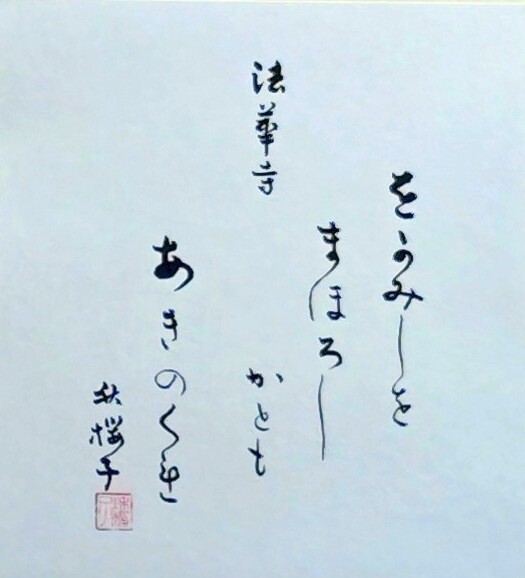 をかみしを
まほろし
法華寺 かとも
あきのくれ
秋桜子